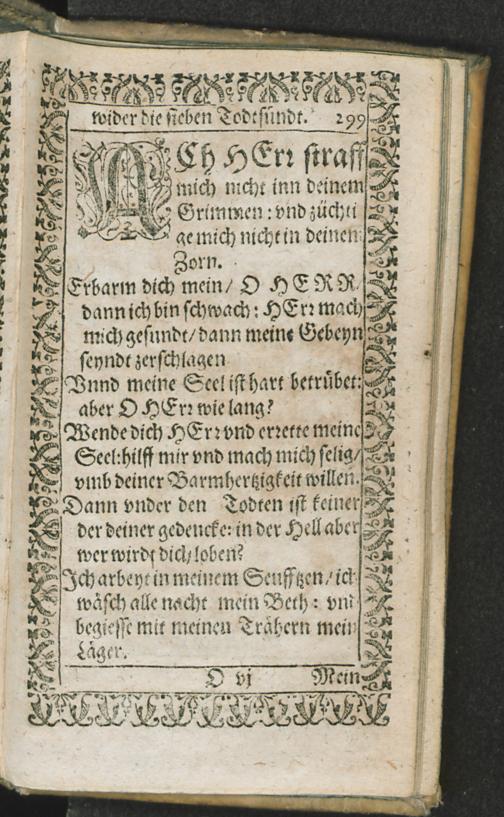 wider die sieben Todtsündt. 299
ACh HErr straff
mich nicht inn deinem
Grimmen : vnd züchti
ge mich nicht in deinem
Zorn.
Erbarm dich mein / O HERR /
dann ich bin schwach : HErr mach
mich gesundt / dann meine Gebeyn
seyndt zerschlagen
Vnnd meine Seel ist hart betrübet:
aber O HErr wie lang?
Wende dich HErr vnd errette meine
Seel: hilff mir vnd mach mich selig /
vmb deiner Barmhertzigkeit willen.
Dann vnder den Todten ist keiner
der deiner gedencke: in der Hell aber
wer wirdt dich loben?
Ich arbeyt in meinem Seufftzen / ich
wäsch alle nacht mein Beth : vnd
begiesse mit meinen Trähern mein
Läger.
O vj Mein